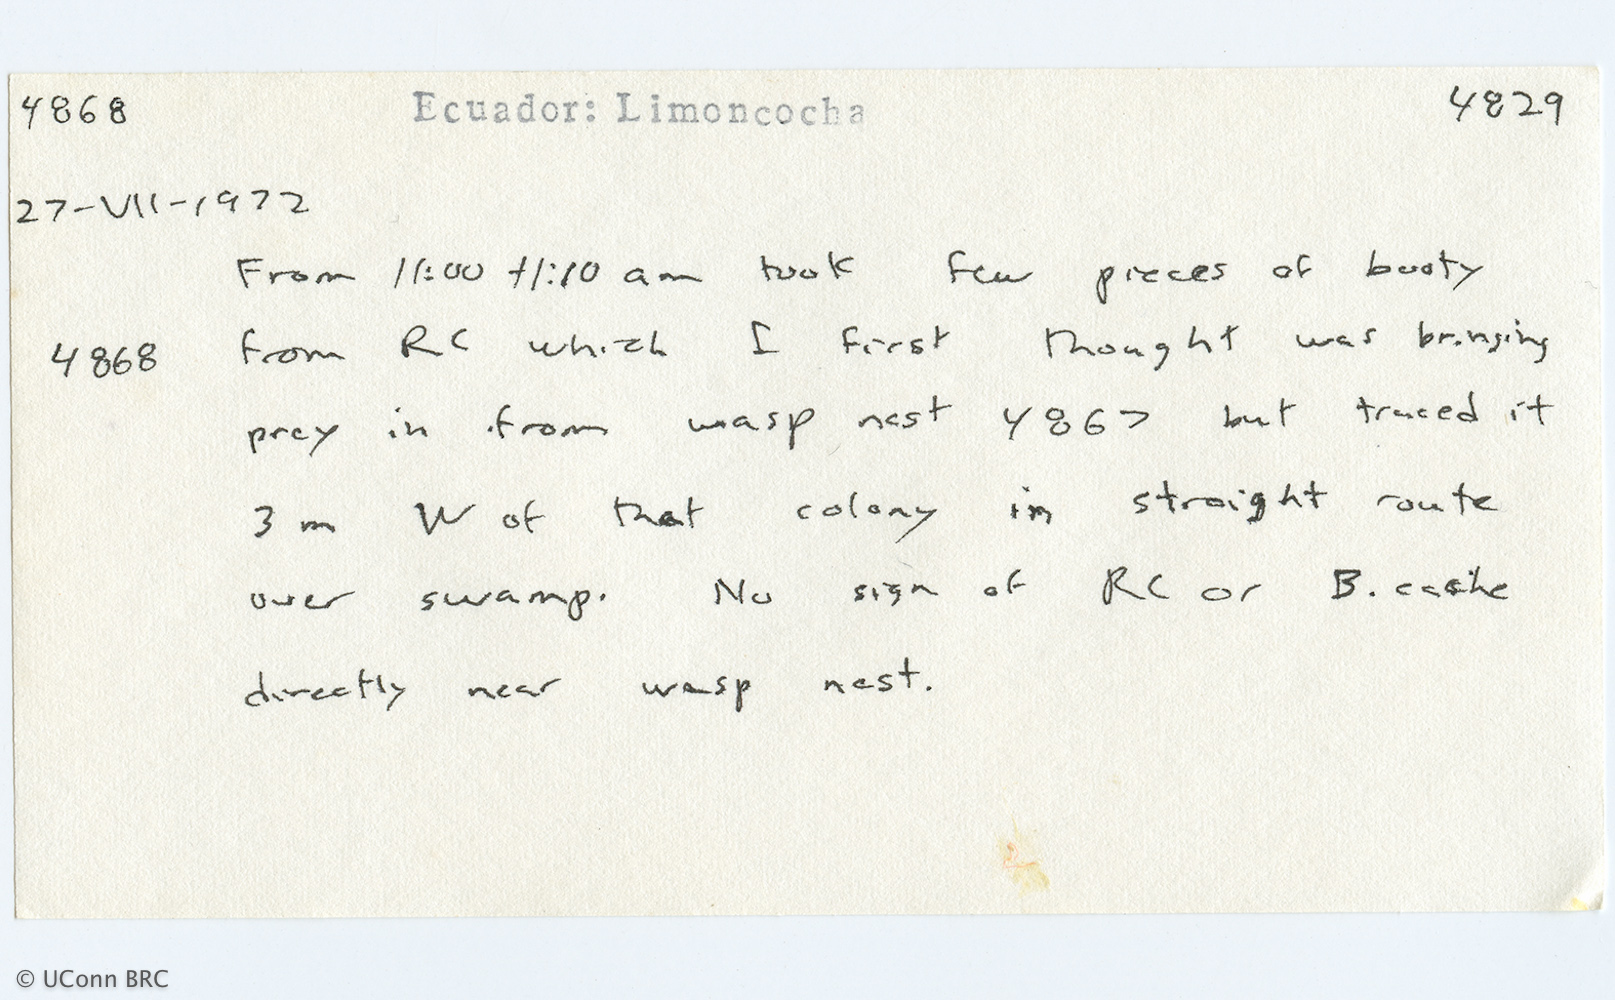 4868 Ecuador: Limoncocha 4829
27-VII-1972
From 11:00 - 11:10 am took few pieces of booty
4868 from RC which I first thought was bringing
prey in from wasp nest 4867 but traced it
3 m W of that colony in straight route
over swamp. No sign of RC or B. cache
directly near wasp nest.
© UConn BRC